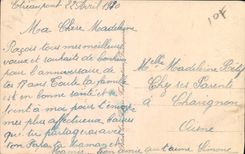 22 Avril 1910
Ma Chère Madeleine
Reçois tous mes meilleurs
vœux et souhaits de bonheur
pour l'anniversaire de
tes 17 ans Toute la famille
est en bonne santé et se
joint à moi pour t'envoyer
mes plus affectueux baisers
que tu partageras avec
ton Papa ta Maman et
ton amie qui t'aime Simone
10f
Mlle Madeleine
Chez ses Parents
à Chavignon
Aisne